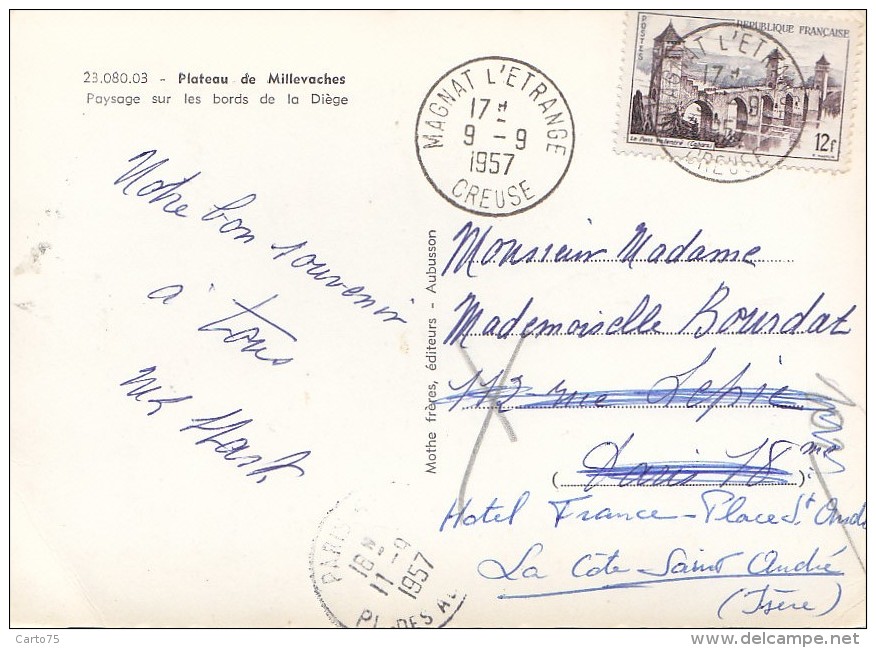 23.080.03 - Plateau de Millevaches
Paysage sur les bords de la Diège
MAGNAT L'ETRANGE
17H
9-9
1957
CREUSE
POSTES
REPUBLIQUE FRANÇAISE
Le Pont Valentré (Cahors)
12f
Notre bon souvenir
à tous
Mothe frères, éditeurs - Aubusson
Monsieur Madame
Mademoiselle Bourdat
112 rue Lepic
Paris 18me
Hotel France - Place St André
La Côte Saint André
(Isère)
PARIS
18H
11-9
1957
Pl. DES AB
Carto75
www.delcampe.net